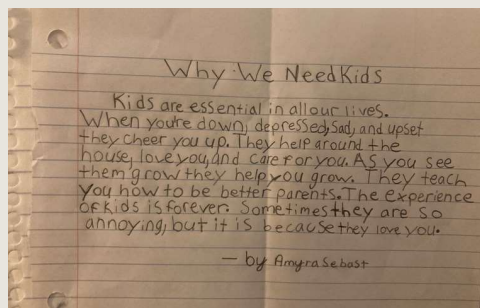 Why We Need Kids
Kids are essential in all our lives.
When you're down, depressed, sad, and upset
they cheer you up. They help around the
house, love you, and care for you. As you see
them grow they help you grow. They teach
you how to be better parents. The experience
of kids is forever. Sometimes they are so
annoying, but it is because they love you.
— by Amyra Sebast